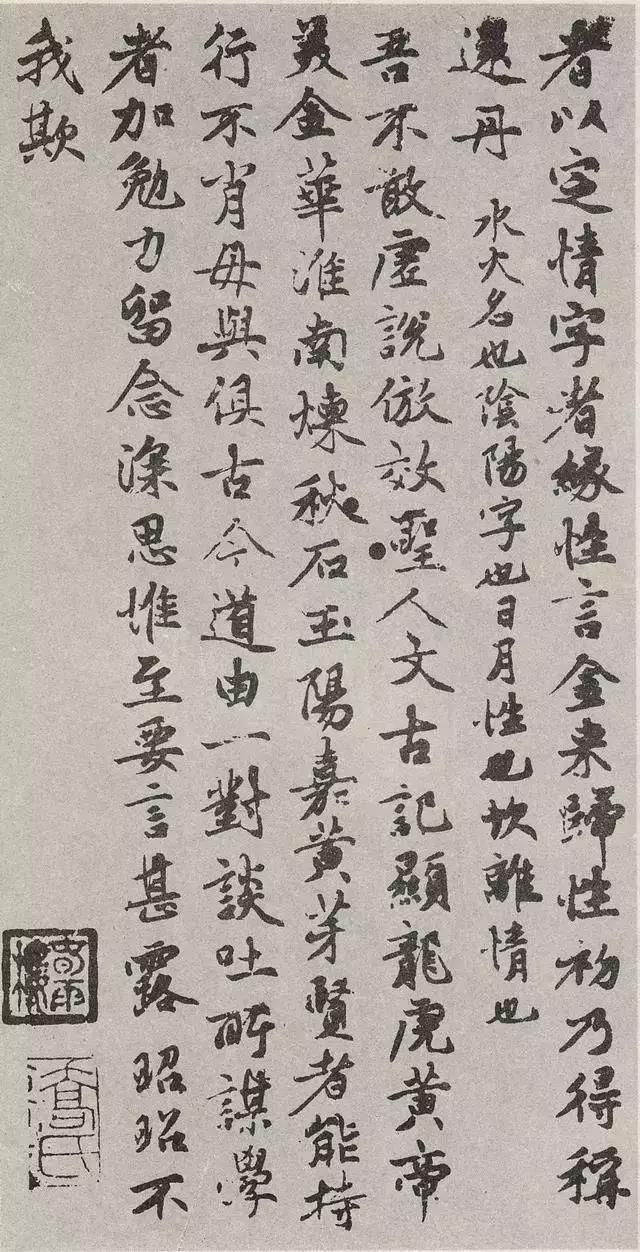 者以定情字者緣性言金来歸性初乃得稱
還丹 水火名也陰陽字也日月性也坎離情也
吾不敢虛說倣效聖人文古記顯龍虎黃帝
美金華淮南煉秋石玉陽嘉黃芽賢者能持
行不肖毋與俱古今道由一對談吐所謀學
者加勉力留念深思惟至要言甚露昭昭不
我欺